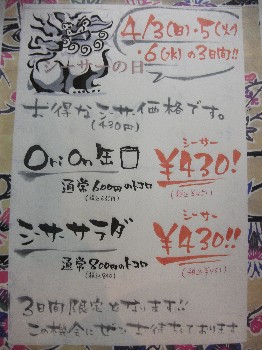 4/3(日)・5(火)
・6(水)の3日間!!
シーサーの日
お得なシーサー価格です。
(430円)
Orion缶
シーサー
¥430!
通常600円のトコロ
シーサーサラダ
シーサー
¥430!!
通常800円のトコロ
3日間限定となります!!
この機会にぜひお待ちしております